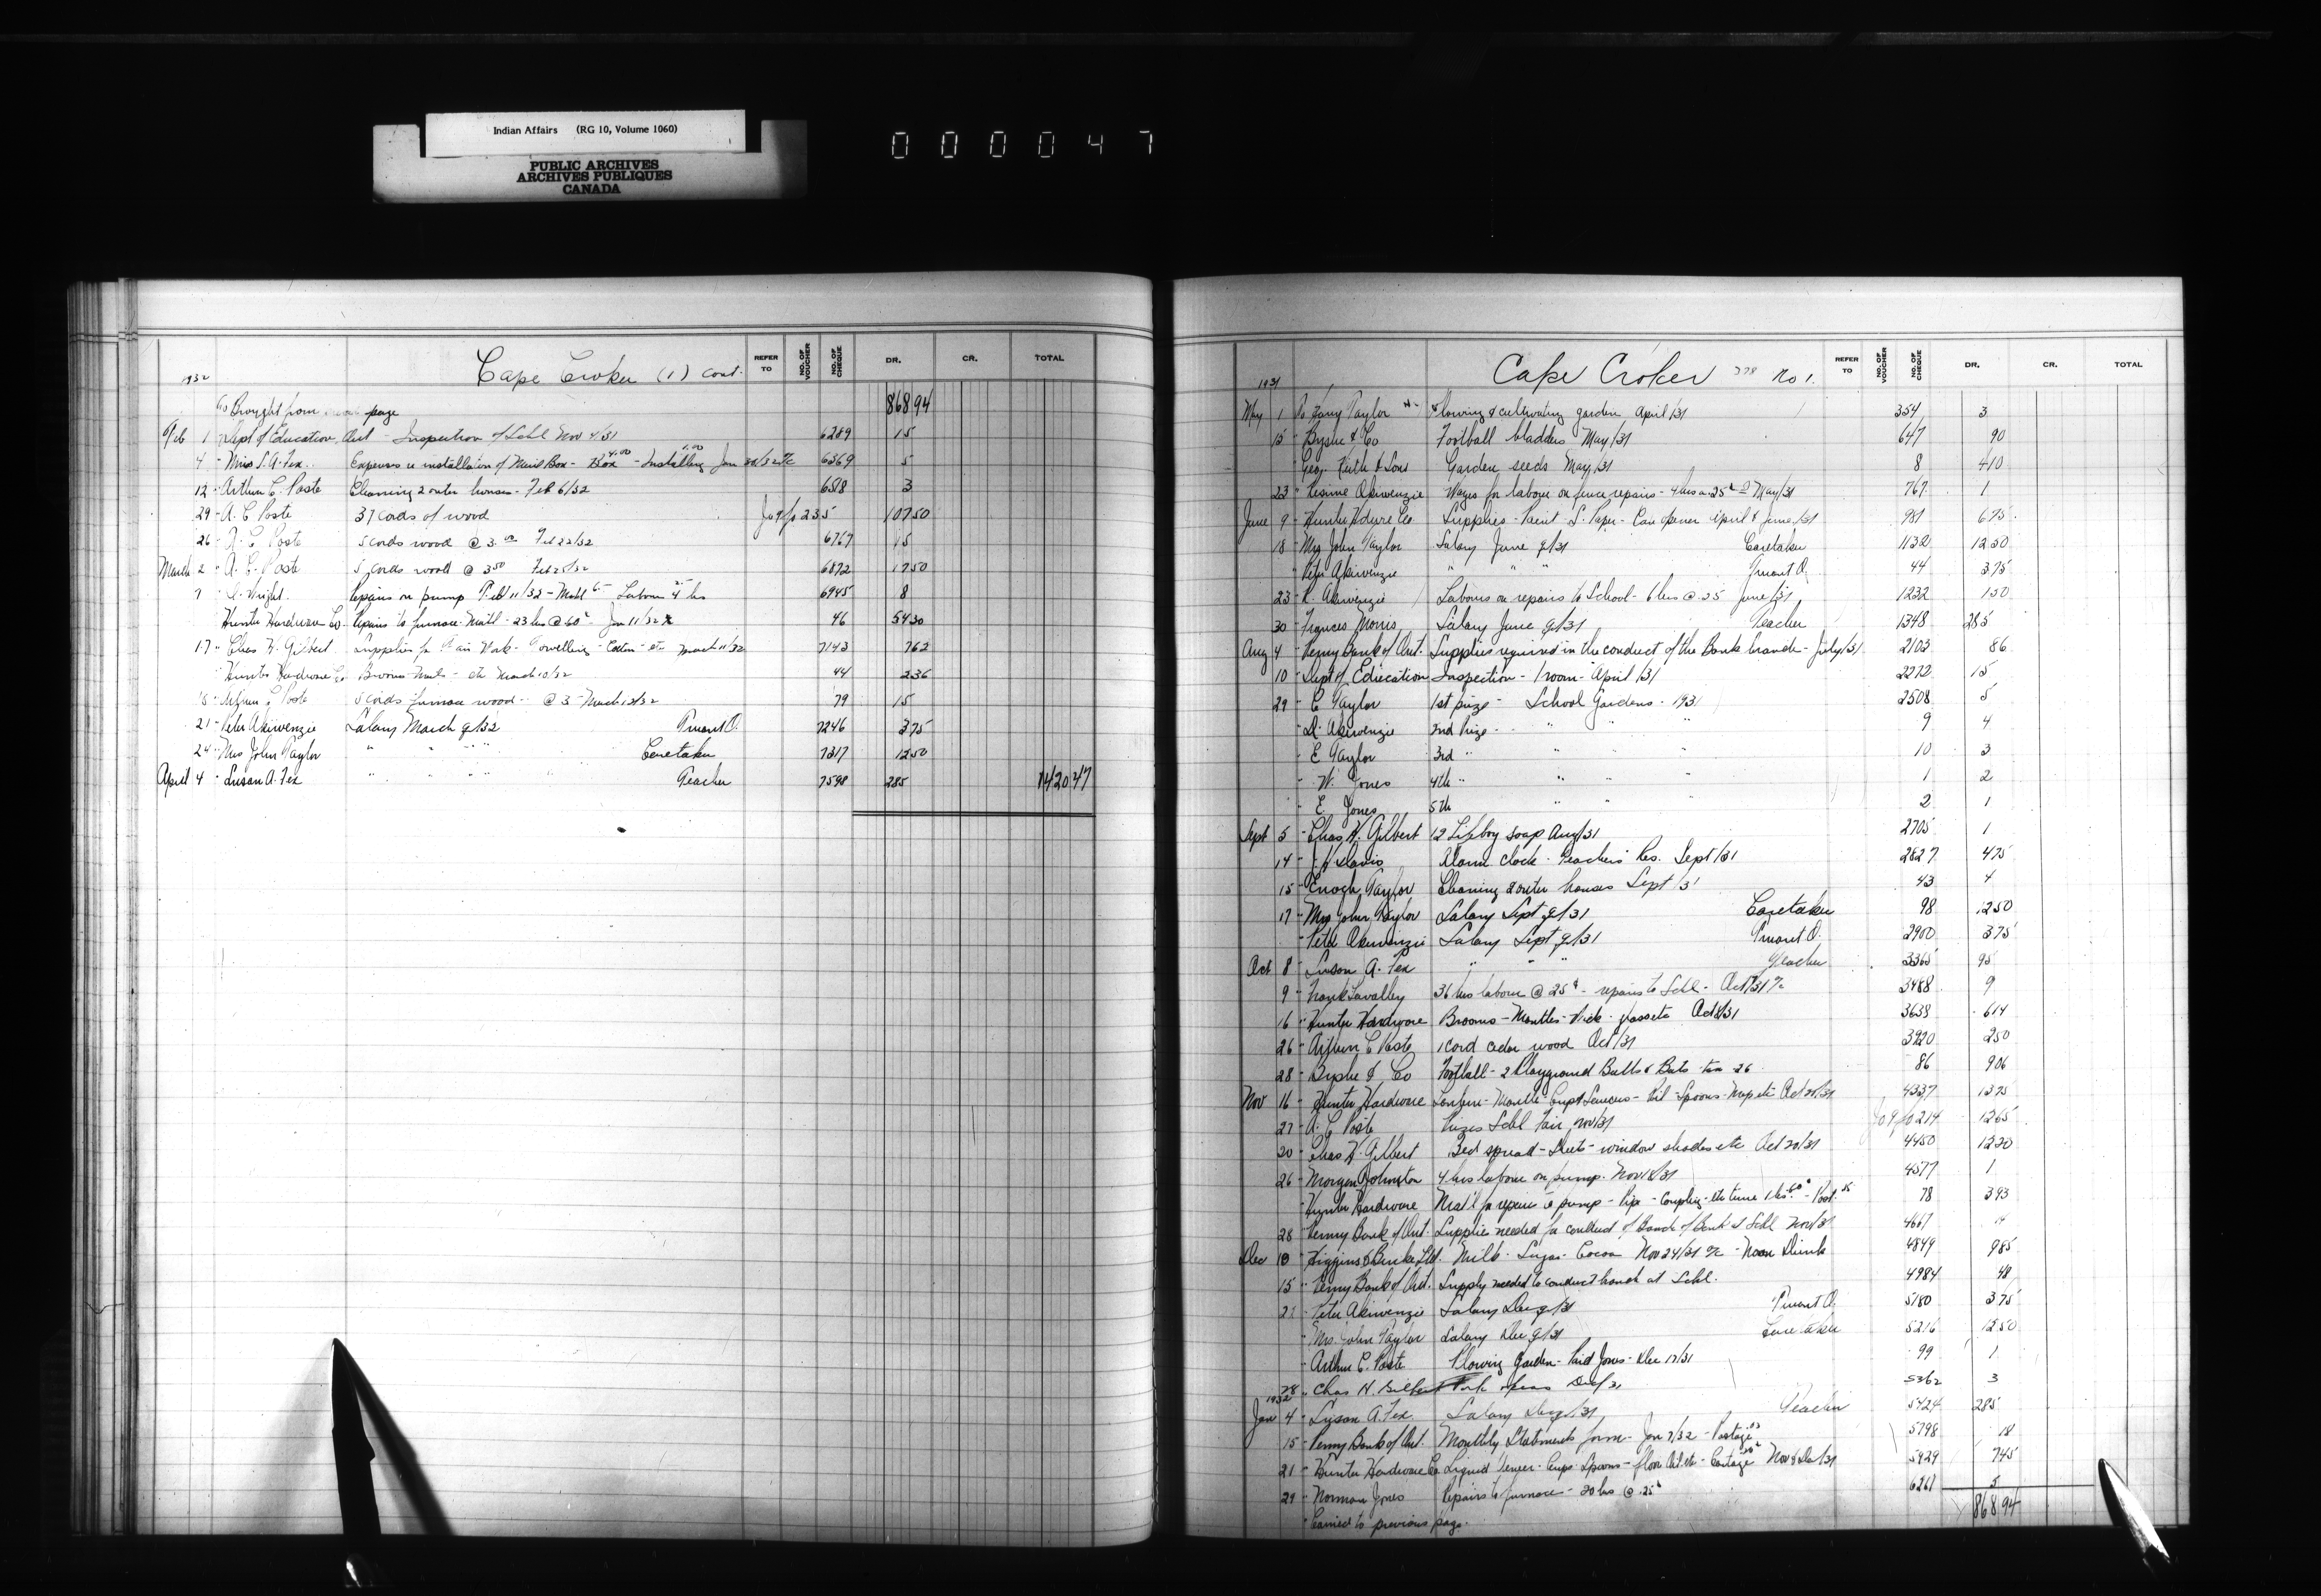 Indian Affairs (RG 10, Volume 1060)
PUBLIC ARCHIVES
ARCHIVES PUBLIQUES
CANADA
000047
1932 Cape Croker (1) Cont. REFER TO NO. OF VOUCHER NO. OF CHEQUE DR. CR. TOTAL
To Brought from page 868 94
Feb 1 " Dept of Education, Ont - Inspection of Schl Nov 4/31 6289 15
4 " Miss S. A. Fex. Expenses re installation of Mail Box - Box 4.00 - Installing 1.00 Jan 30/32 a/c 6369 5
12 " Arthur C. Poste Cleaning 2 outer houses - Feb 6/32 6518 3
29 " A. C Poste 37 cords of wood Jo 9 fo 235 107 50
26 " A. C Poste 5 cords wood @ 3.00 Feb 22/32 6767 15
March 2 " A. C. Poste 5 cords wood @ 3 50 Feb 25/32 6872 17 50
7 " Wright. Repairs on pump Feb 11/32 - Matl Labour 4 hrs 6945 8
Hunter Hardware Co. Repairs to furnace Matl - 23 hrs @ 60c - Jan 11/32 46 54 30
17 " Chas H. Gilbert Supplies for Work - Towelling - Cotton - etc March 11/32 7143 7 62
" Hunter Hardware Co. Brooms - - etc March 10/32 44 2 36
15 " Arthur C Poste 5 cords furnace wood - @ 3 - March 12/32 79 15
21 " Peter Akiwenzie Salary March q/32 Truant O. 7246 3 75
24 " Mrs John Taylor " " " Caretaker 7317 12 50
April 4 " Susan A. Fex " " " Teacher 7598 285 1420 47
1931 Cape Croker 278 No 1. REFER TO NO. OF VOUCHER NO. OF CHEQUE DR. CR. TOTAL
May 1 To Taylor Plowing & cultivating garden April/31 354 3
15 " Byshe & Co Football bladders May/31 647 90
" Geo. Keith & Sons Garden seeds May/31 8 4 10
23 " Akiwenzie Wages for labour on fence repairs - 4 hrs @ 25c May/31 767 1
June 9 " Hunter Hdwre Co Supplies - Paint S. Paper - Can opener April & June/31 981 6 75
18 " Mrs John Taylor Salary June q/31 Caretaker 1132 12 50
" Peter Akiwenzie " " " Truant O. 44 3 75
23 " Akiwenzie Labour on repairs to School - 6 hrs @ 25 June/31 1232 1 50
30 " Frances Morris Salary June q/31 Teacher 1348 285
Aug 4 " Penny Bank of Ont. Supplies required in the conduct of the Bank branch - July/31 2103 86
10 " Dept of Education Inspection - 1 room - April/31 2272 15
29 " E Taylor 1st prize - School Gardens - 1931 2508 5
" Akiwenzie 2nd Prize - " " " 9 4
" E Taylor 3rd " " " " 10 3
" W. Jones 4th " " " " 1 2
" E. Jones 5th " " " 2 1
Sept 5 " Chas H. Gilbert 12 Lifeboy soap Aug/31 2705 1
14 " Davis Alarm clock - Teachers' Res. Sept/31 2827 4 75
15 " Enoch Taylor Cleaning 2 outer houses Sept/31 43 4
17 " Mrs John Taylor Salary Sept q/31 Caretaker 98 12 50
" Peter Akiwenzie Salary Sept q/31 Truant O. 2900 3 75
Oct 8 " Susan A. Fex " " " Teacher 3365 95
9 " Frank Lavalley 36 hrs labour @ 25c - repairs to Schl - Oct/31 a/c 3488 9
16 " Hunter Hardware Brooms - Mantles - Wick - Oct/31 3638 6 14
26 " Arthur C Poste 1 cord cedar wood Oct/31 3920 2 50
28 " Byshe & Co Football - 2 Playground Balls & Bats - tax 26 86 9 06
Nov 16 " Hunter Hardware - Mantle - Cups & Saucers - Oil - Spoons - Mop etc Oct 20/31 4337 13 75
27 " A. C Poste Prizes Schl Fair, Nov/31 Jo 9 fo 214 12 65
20 " Chas H. Gilbert Bed spread - Sheets - window shades etc Oct 20/31 4450 12 20
26 " Morgan Johnston 4 hrs labour on pump. Nov/31 4577 1
" Hunter Hardware Mat'l for repairs to pump - Pipe - Coupling - etc time 1 hr 60c - 78 3 93
28 " Penny Bank of Ont. Supplies needed for conduct of Branch of Bank at Schl Nov/31 4667 14
Dec 10 " Higgins & Burke Ltd. Milk - Sugar - Cocoa Nov 24/31 a/c - Noon Drink 4849 9 85
15 " Penny Bank of Ont. Supply needed to conduct branch at Schl. 4984 48
22 " Peter Akiwenzie Salary Dec q/31 Truant O. 5180 3 75
" Mrs. John Taylor Salary Dec q/31 Caretaker 5216 12 50
" Arthur C. Poste Plowing Garden - Paid Jones - Dec 17/31 99 1
28 " Chas H. Gilbert Dec/31 5362 3
1932 Jan 4 " Susan A. Fex Salary Dec q/31 Teacher 5424 285
15 " Penny Bank of Ont. Monthly Statements forms - Jan 7/32 - Postage 03 5798 18
21 " Hunter Hardware Co Liquid - Cups - Spoons - floor Oil etc - Cartage Nov & Dec/31 5929 7 45
29 " Norman Jones Repairs to furnace - 20 hrs @ 25c 6261 5
" Carried to previous page. 868 94